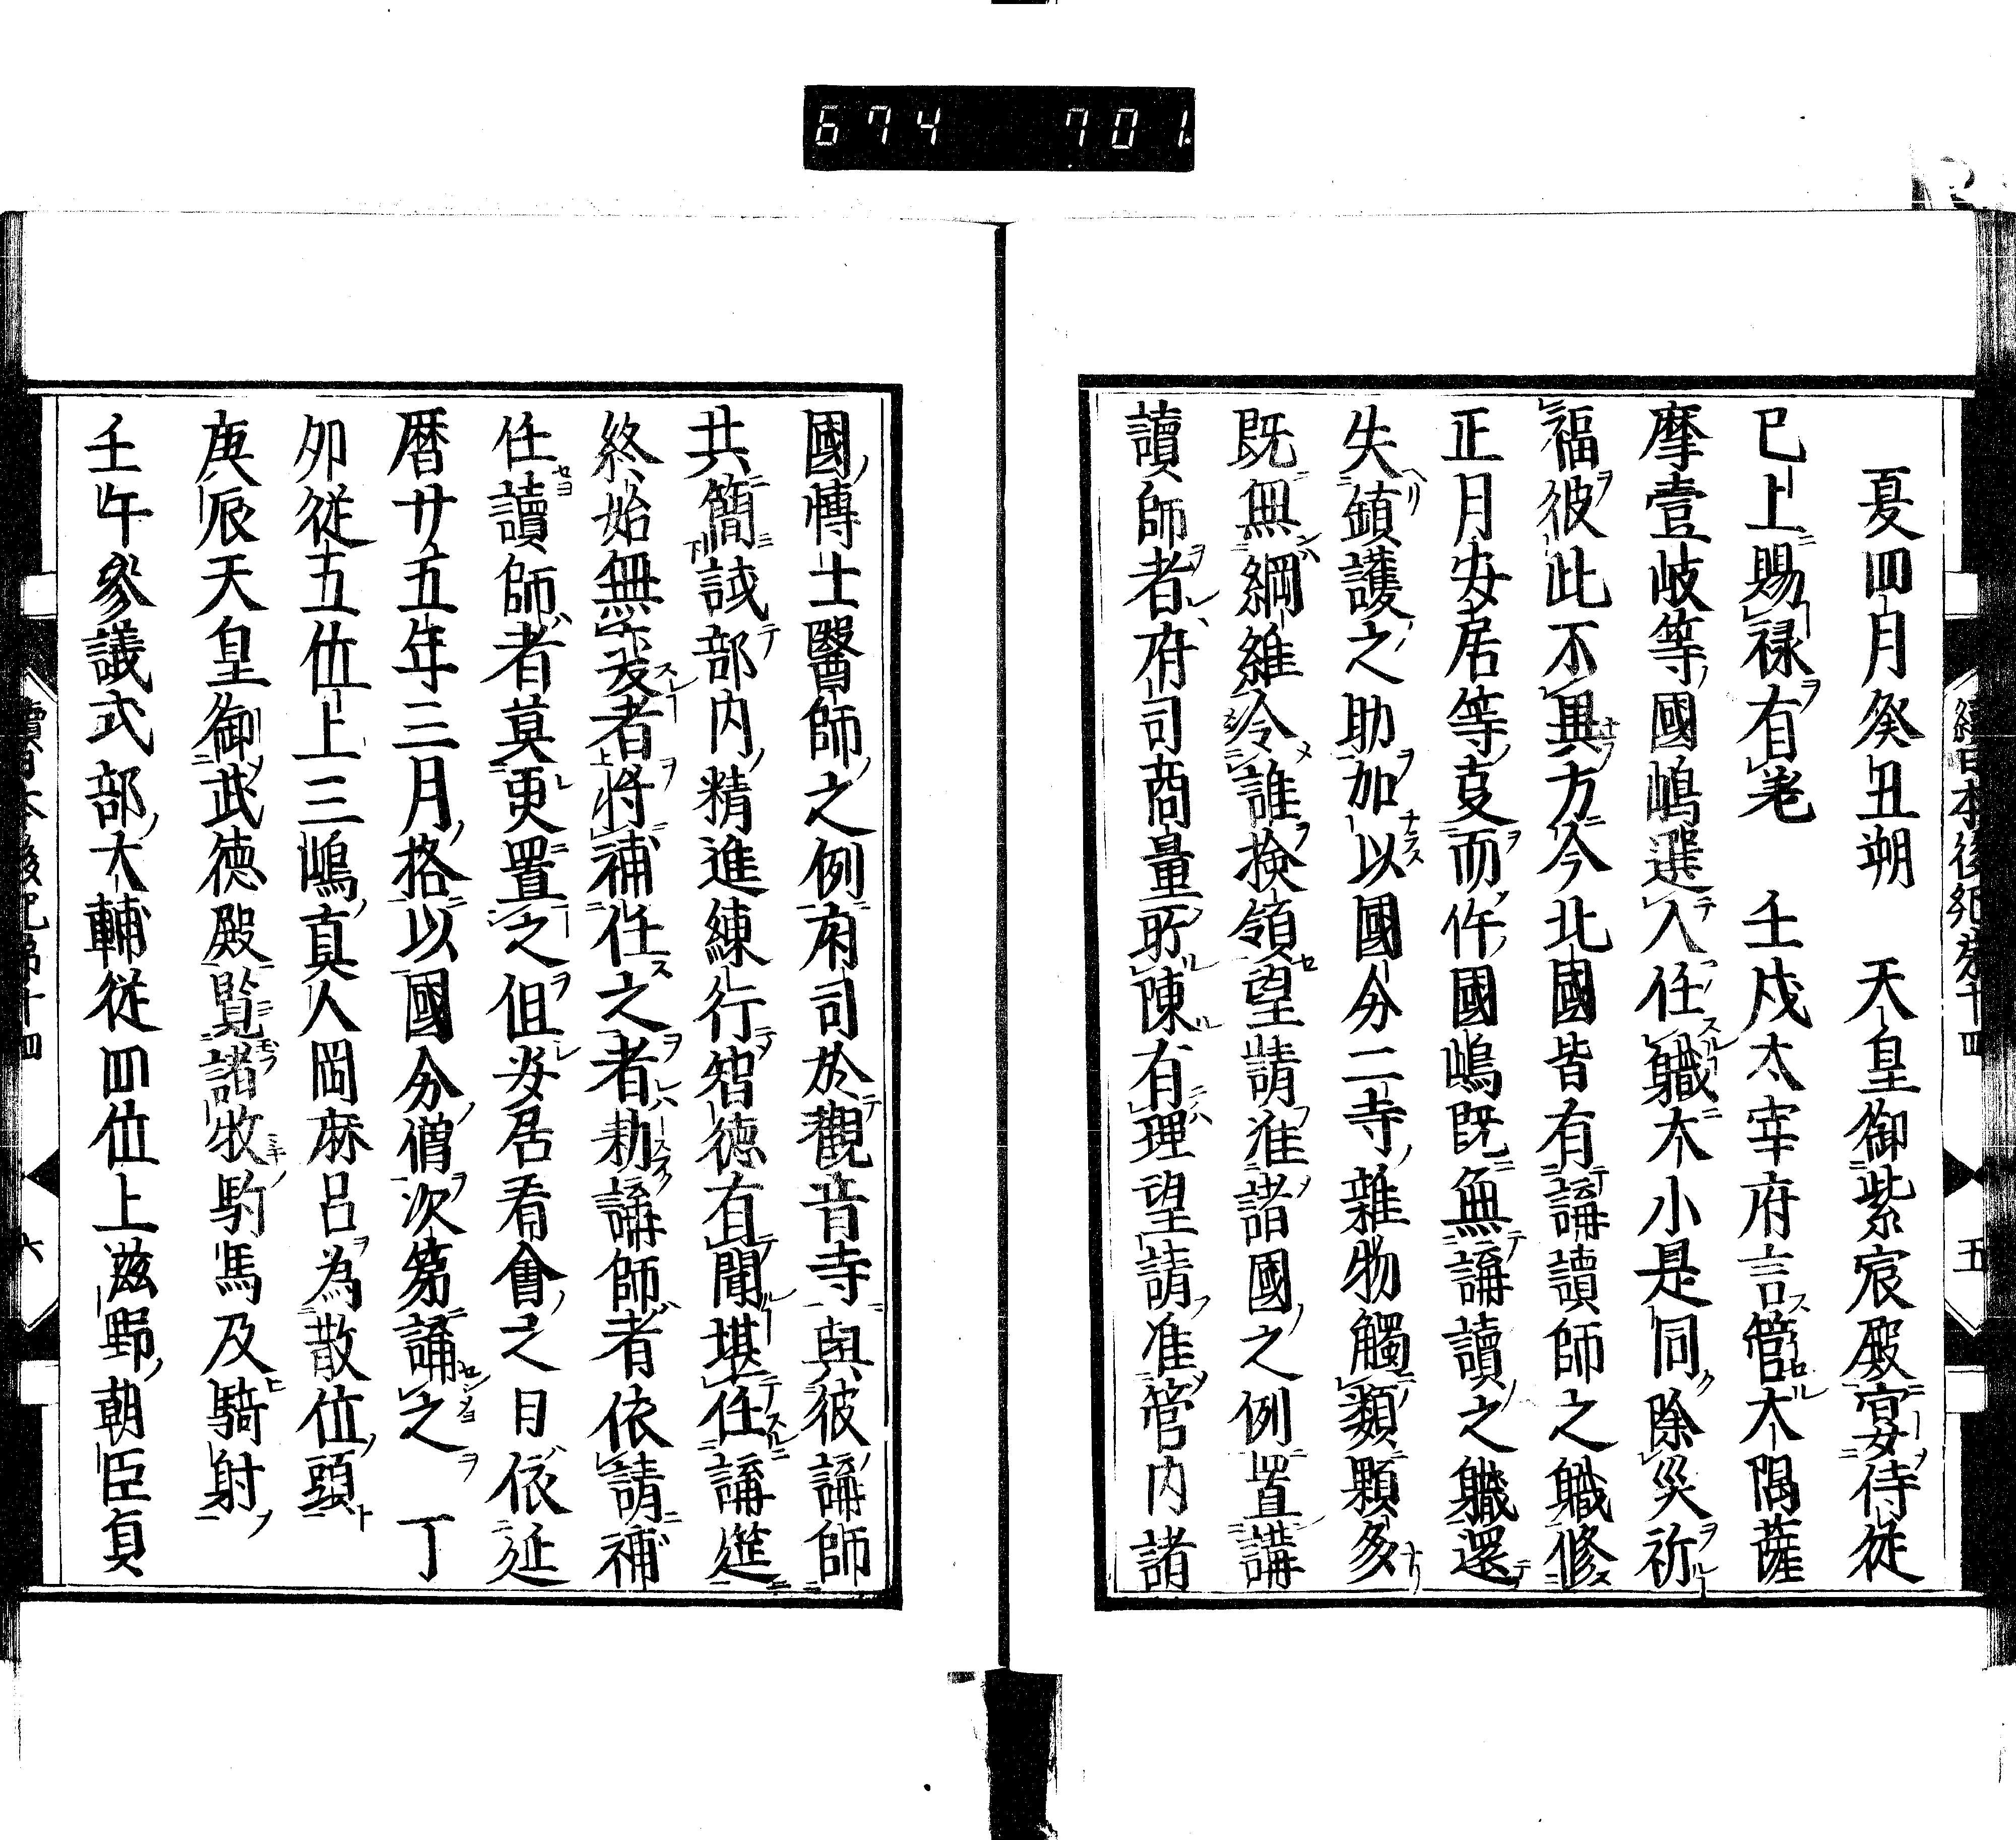 674 701
續日本後紀卷十四 五
夏四月癸丑朔 天皇御紫宸殿宴侍従
已上賜禄有差 壬戌太宰府言管大隅薩
摩壹岐等國嶋選入任職大小是同除災祈
福彼此不異方今北國皆有講讀師之職修
正月安居等㕝而件國嶋既無講讀之職還
失鎮護之助加以國分二寺雑物觸類顆多
既無綱維令誰検領望請准諸國之例置講
讀師者府司商量所陳有理望請准管内諸
國博士醫師之例府司於觀音寺與彼講師
共簡試部内精進練行智徳有聞堪任講莚
終始無變者將補任之者勅講師者依請補
任讀師者莫更置之但安居看會之日依延
暦廿五年三月格以國分僧次第講之 丁
夘従五位上三嶋真人岡麻呂為散位頭
庚辰天皇御武徳殿覧諸牧駒馬及騎射
壬午参議式部大輔従四位上滋野朝臣貞
續日本後紀第十四 六